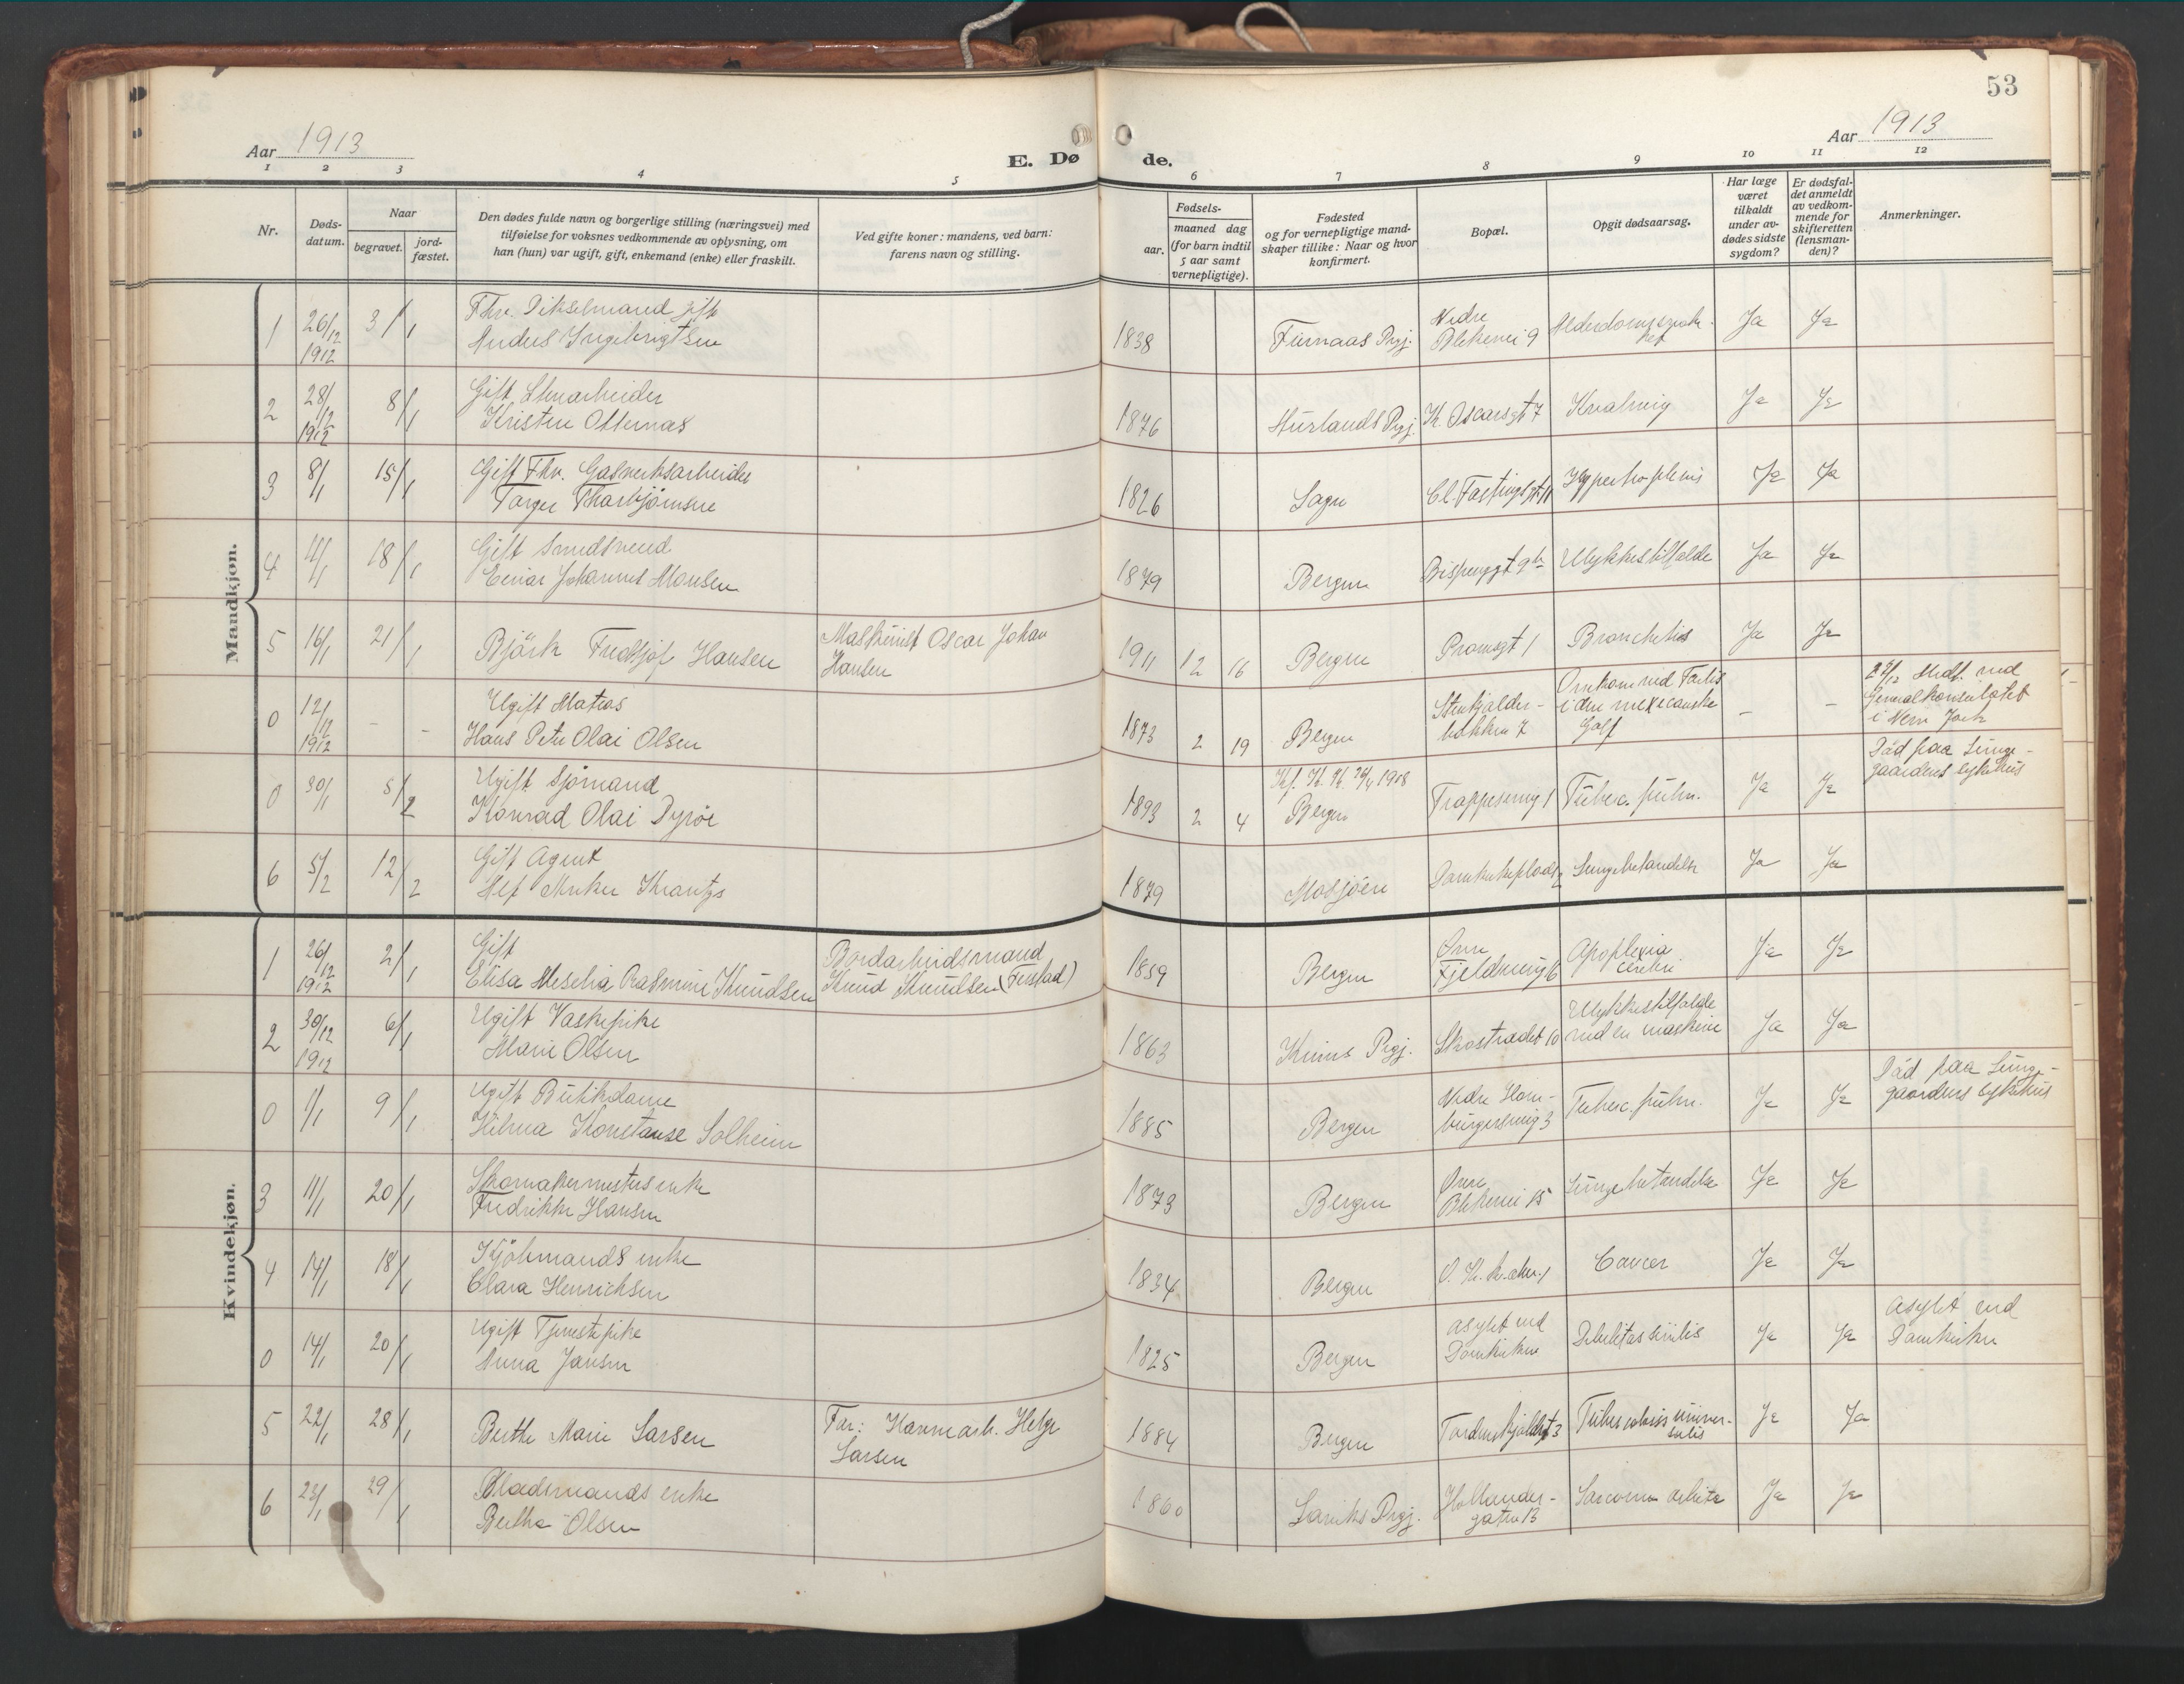 53
Aar 1913
E. Dø de.
Aar 1913
1 2 3 4 5 6 7 8 9 10 11 12
Nr.
Døds-
datum.
Naar
begravet.
jord-
fæstet.
Den dødes fulde navn og borgerlige stilling (næringsvei) med
tilføielse for voksnes vedkommende av oplysning, om
han (hun) var ugift, gift, enkemand (enke) eller fraskilt.
Ved gifte koner: mandens, ved barn:
farens navn og stilling.
Fødsels-
aar.
maaned dag
(for barn indtil
5 aar samt
vernepligtige).
Fødested
og for vernepligtige mand-
skaper tillike: Naar og hvor
konfirmert.
Bopæl.
Opgit dødsaarsag.
Har læge
været
tilkaldt
under av-
dødes sidste
sygdom?
Er dødsfal-
det anmeldt
av vedkom-
mende for
skifteretten
(lensman-
den)?
Anmerkninger.
Mandkjøn.
1 26/12 1912 3/1
Fhv. gift
Anders Ingebrigtsen
1838 Prgj. Nedre
Blekevei 9 Ja Ja
2 28/12 1912 8/1
Gift Stenarbeider
Kristen Otternas
1876 Prgj. K. Oscarsgt 7 Kvalning Ja Ja
3 8/1 15/1
Gift Fhv. Gasverksarbeider
Torger Thorbjørnsen
1826 Cl. Fastingsgt 11 Ja Ja
4 11/1 18/1
Gift Smedsvend
Einar Johannes Monsen
1879 Bergen Ulykkestilfælde Ja Ja
5 16/1 21/1
Bjørk Fridtjof Hansen
Maskinist Oscar Johan
Hansen
1911 12 16 Bergen Promsgt 1 Bronchitis Ja Ja
0 12/12 1912 - -
Ugift Matros
Hans Peter Olai Olsen
1873 2 19 Bergen Stenkjelder-
bakken 7
Omkom ved Forlis
i den mexecanske
Golf - -
29/12 Medt. ved
Generalkonsulatet
i New York
0 30/1 5/2
Ugift Sjømand
Konrad Olai Dyrøe
1893 2 4 Kf. 26/4 1908
Bergen 1 Tuberc. pulm. Ja Ja
Død paa Lunge-
gaardens sykehus
6 5/2 12/2
Gift Agent
Krantz
1879 Mosjøen Domkirkeplads 2 Lungebetændelse Ja Ja
Kvindekjøn.
1 26/12 1912 2/1
Gift
Elisa Meselia Rasmine Knudsen
Bordarbeidsmand
Knud Knudsen
1859 Bergen Øvre
Fjeldsmug 6 Apoplexia
cerebri Ja Ja
2 30/12 1912 6/1
Ugift Vaskepike
Marie Olsen
1863 Kinns Prgj. Skostrædet 10 Ulykkestilfælde
ved en maskine Ja Ja
0 1/1 9/1
Ugift Butikdame
Hilma Konstanse Solheim
1885 Bergen Nedre Ham-
burgersmug 3 Tuberc. pulm. Ja Ja
Død paa Lunge-
gaardens sykehus
3 11/1 20/1
Skomakermesters enke
Fredrikke Hansen
1873 Bergen Øvre
Blekevei 15 Lungebetændelse Ja Ja
4 14/1 18/1
Kjøbmands enke
Clara Henrichsen
1834 Bergen Cancer Ja Ja
0 14/1 20/1
Ugift Tjenestepike
Anna Jansen
1825 Bergen Asylet ved
Domkirken Debilitas senilis Ja Ja
Asylet ved
Domkirken
5 22/1 28/1
Berthe Marie Larsen
Far: Havnearb. Helge
Larsen
1884 Bergen Tordenskjoldsgt 3 Tuberculosis univer-
salis Ja Ja
6 23/1 29/1
enke
Berthe Olsen
1860 Laviks Prgj. Hollender-
gaten 13 Ja Ja